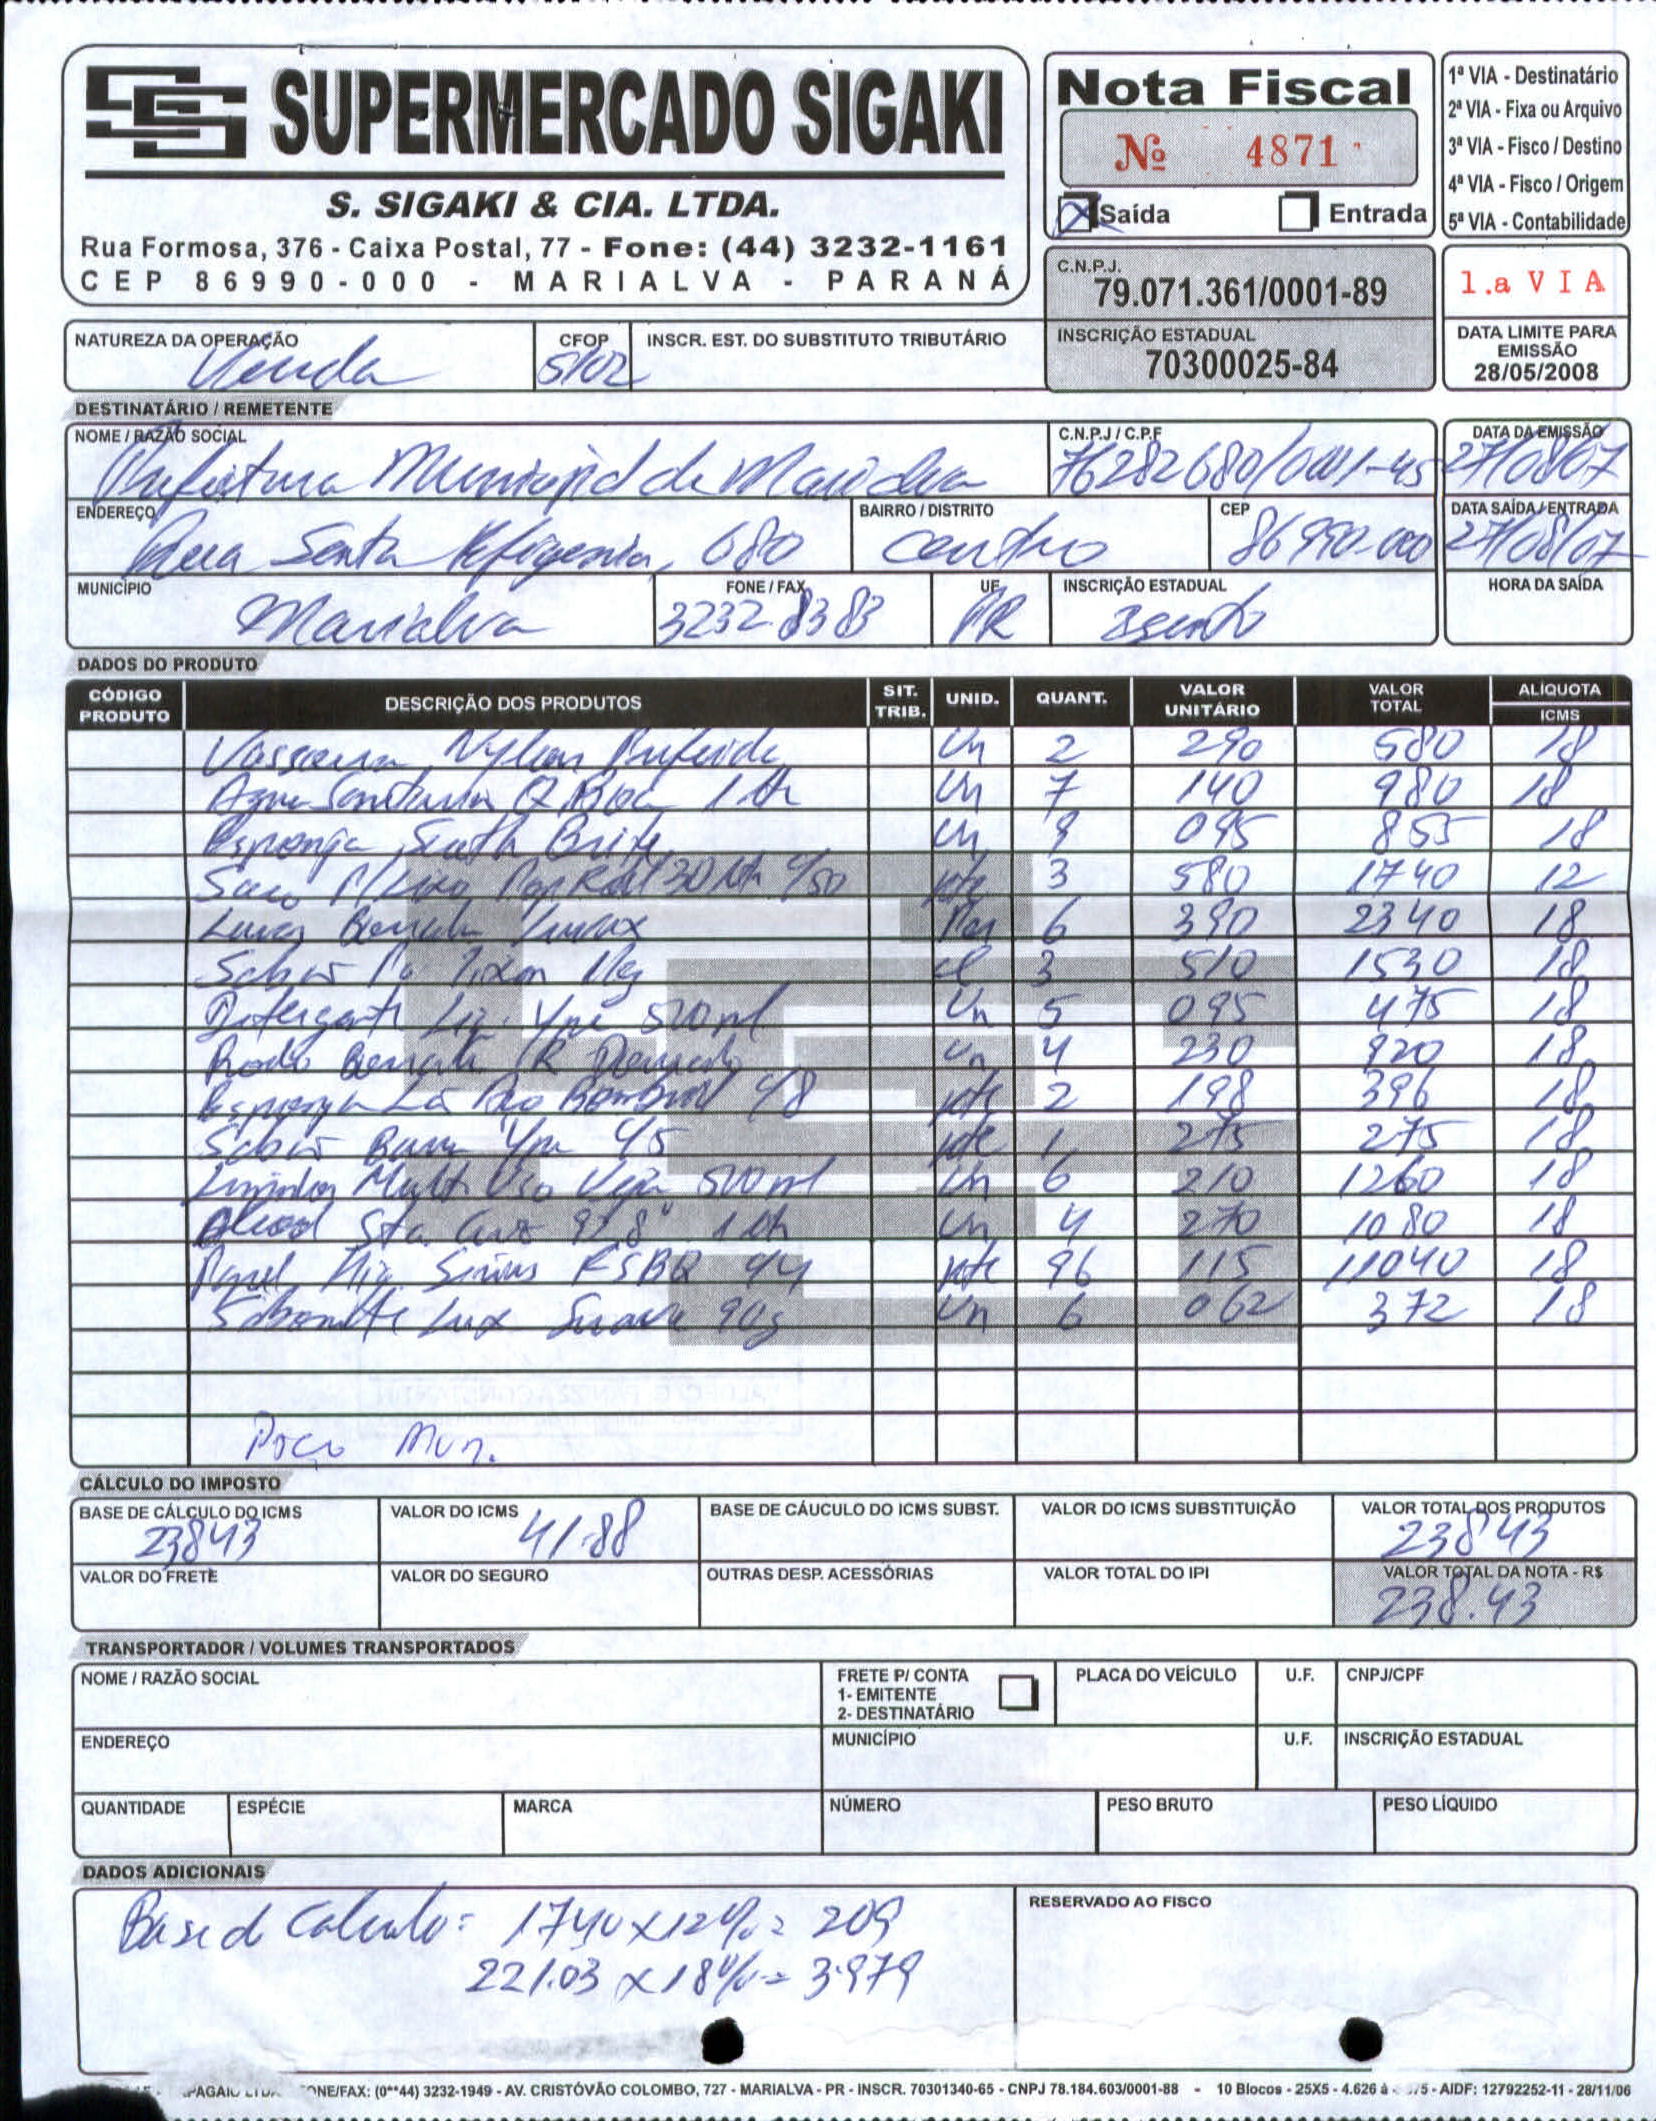 SUPERMERCADO SIGAKI
S. SIGAKI & CIA. LTDA.
Rua Formosa, 376 - Caixa Postal, 77 - Fone: (44) 3232-1161
CEP 86990-000 - MARIALVA - PARANÁ
Nota Fiscal
Nº 4871
X Saída Entrada
1ª VIA - Destinatário
2ª VIA - Fixa ou Arquivo
3ª VIA - Fisco / Destino
4ª VIA - Fisco / Origem
5ª VIA - Contabilidade
C.N.P.J.
79.071.361/0001-89
1.a VIA
NATUREZA DA OPERAÇÃO CFOP INSCR. EST. DO SUBSTITUTO TRIBUTÁRIO
Venda 5102
INSCRIÇÃO ESTADUAL
70300025-84
DATA LIMITE PARA
EMISSÃO
28/05/2008
DESTINATÁRIO / REMETENTE
NOME / RAZÃO SOCIAL C.N.P.J / C.P.F DATA DA EMISSÃO
Prefeitura Municipal de Marialva 76282680/0001-45 27/08/07
ENDEREÇO BAIRRO / DISTRITO CEP DATA SAÍDA / ENTRADA
Rua Santa Efigenia, 680 centro 86990-000 27/08/07
MUNICÍPIO FONE / FAX UF INSCRIÇÃO ESTADUAL HORA DA SAÍDA
Marialva 3232-8383 PR Isento
DADOS DO PRODUTO
CÓDIGO PRODUTO DESCRIÇÃO DOS PRODUTOS SIT. TRIB. UNID. QUANT. VALOR UNITÁRIO VALOR TOTAL ALÍQUOTA ICMS
Vassoura Nylon Preferida Un 2 290 580 18
Agua Sanitaria Q Boa 1 Lt Un 7 140 980 18
Esponja Scoth Brite Un 9 095 855 18
Saco P/ Lixo 30 Lt c/50 pte 3 580 1740 12
Luva 6 390 2340 18
Sabão Po Tixan 1kg 3 510 1530 18
Detergente Liq. Ypê 500ml Un 5 095 475 18
Rodo Un 4 230 920 18
Esponja Lã Aço Bombril c/8 pte 2 198 396 18
Sabão Barra Ype c/5 pte 1 275 275 18
Multi Uso Veja 500ml Un 6 210 1260 18
Alcool Sta. Cruz 92,8° 1 Lt Un 4 270 1080 18
Papel Hig. Sirius FSBQ c/4 pte 96 115 11040 18
Sabonete Lux Suave 90g Un 6 062 372 18
Poço Mun.
CÁLCULO DO IMPOSTO
BASE DE CÁLCULO DO ICMS VALOR DO ICMS BASE DE CÁUCULO DO ICMS SUBST. VALOR DO ICMS SUBSTITUIÇÃO VALOR TOTAL DOS PRODUTOS
23843 41.88 23843
VALOR DO FRETE VALOR DO SEGURO OUTRAS DESP. ACESSÓRIAS VALOR TOTAL DO IPI VALOR TOTAL DA NOTA - R$
238.43
TRANSPORTADOR / VOLUMES TRANSPORTADOS
NOME / RAZÃO SOCIAL FRETE P/ CONTA PLACA DO VEÍCULO U.F. CNPJ/CPF
1- EMITENTE
2- DESTINATÁRIO
ENDEREÇO MUNICÍPIO U.F. INSCRIÇÃO ESTADUAL
QUANTIDADE ESPÉCIE MARCA NÚMERO PESO BRUTO PESO LÍQUIDO
DADOS ADICIONAIS
RESERVADO AO FISCO
Base d Calculo = 1740 x 12% = 209
221.03 x 18% = 3979
FONE/FAX: (0**44) 3232-1949 - AV. CRISTÓVÃO COLOMBO, 727 - MARIALVA - PR - INSCR. 70301340-65 - CNPJ 78.184.603/0001-88 - 10 Blocos - 25X5 - 4.626 à - AIDF: 12792252-11 - 28/11/06